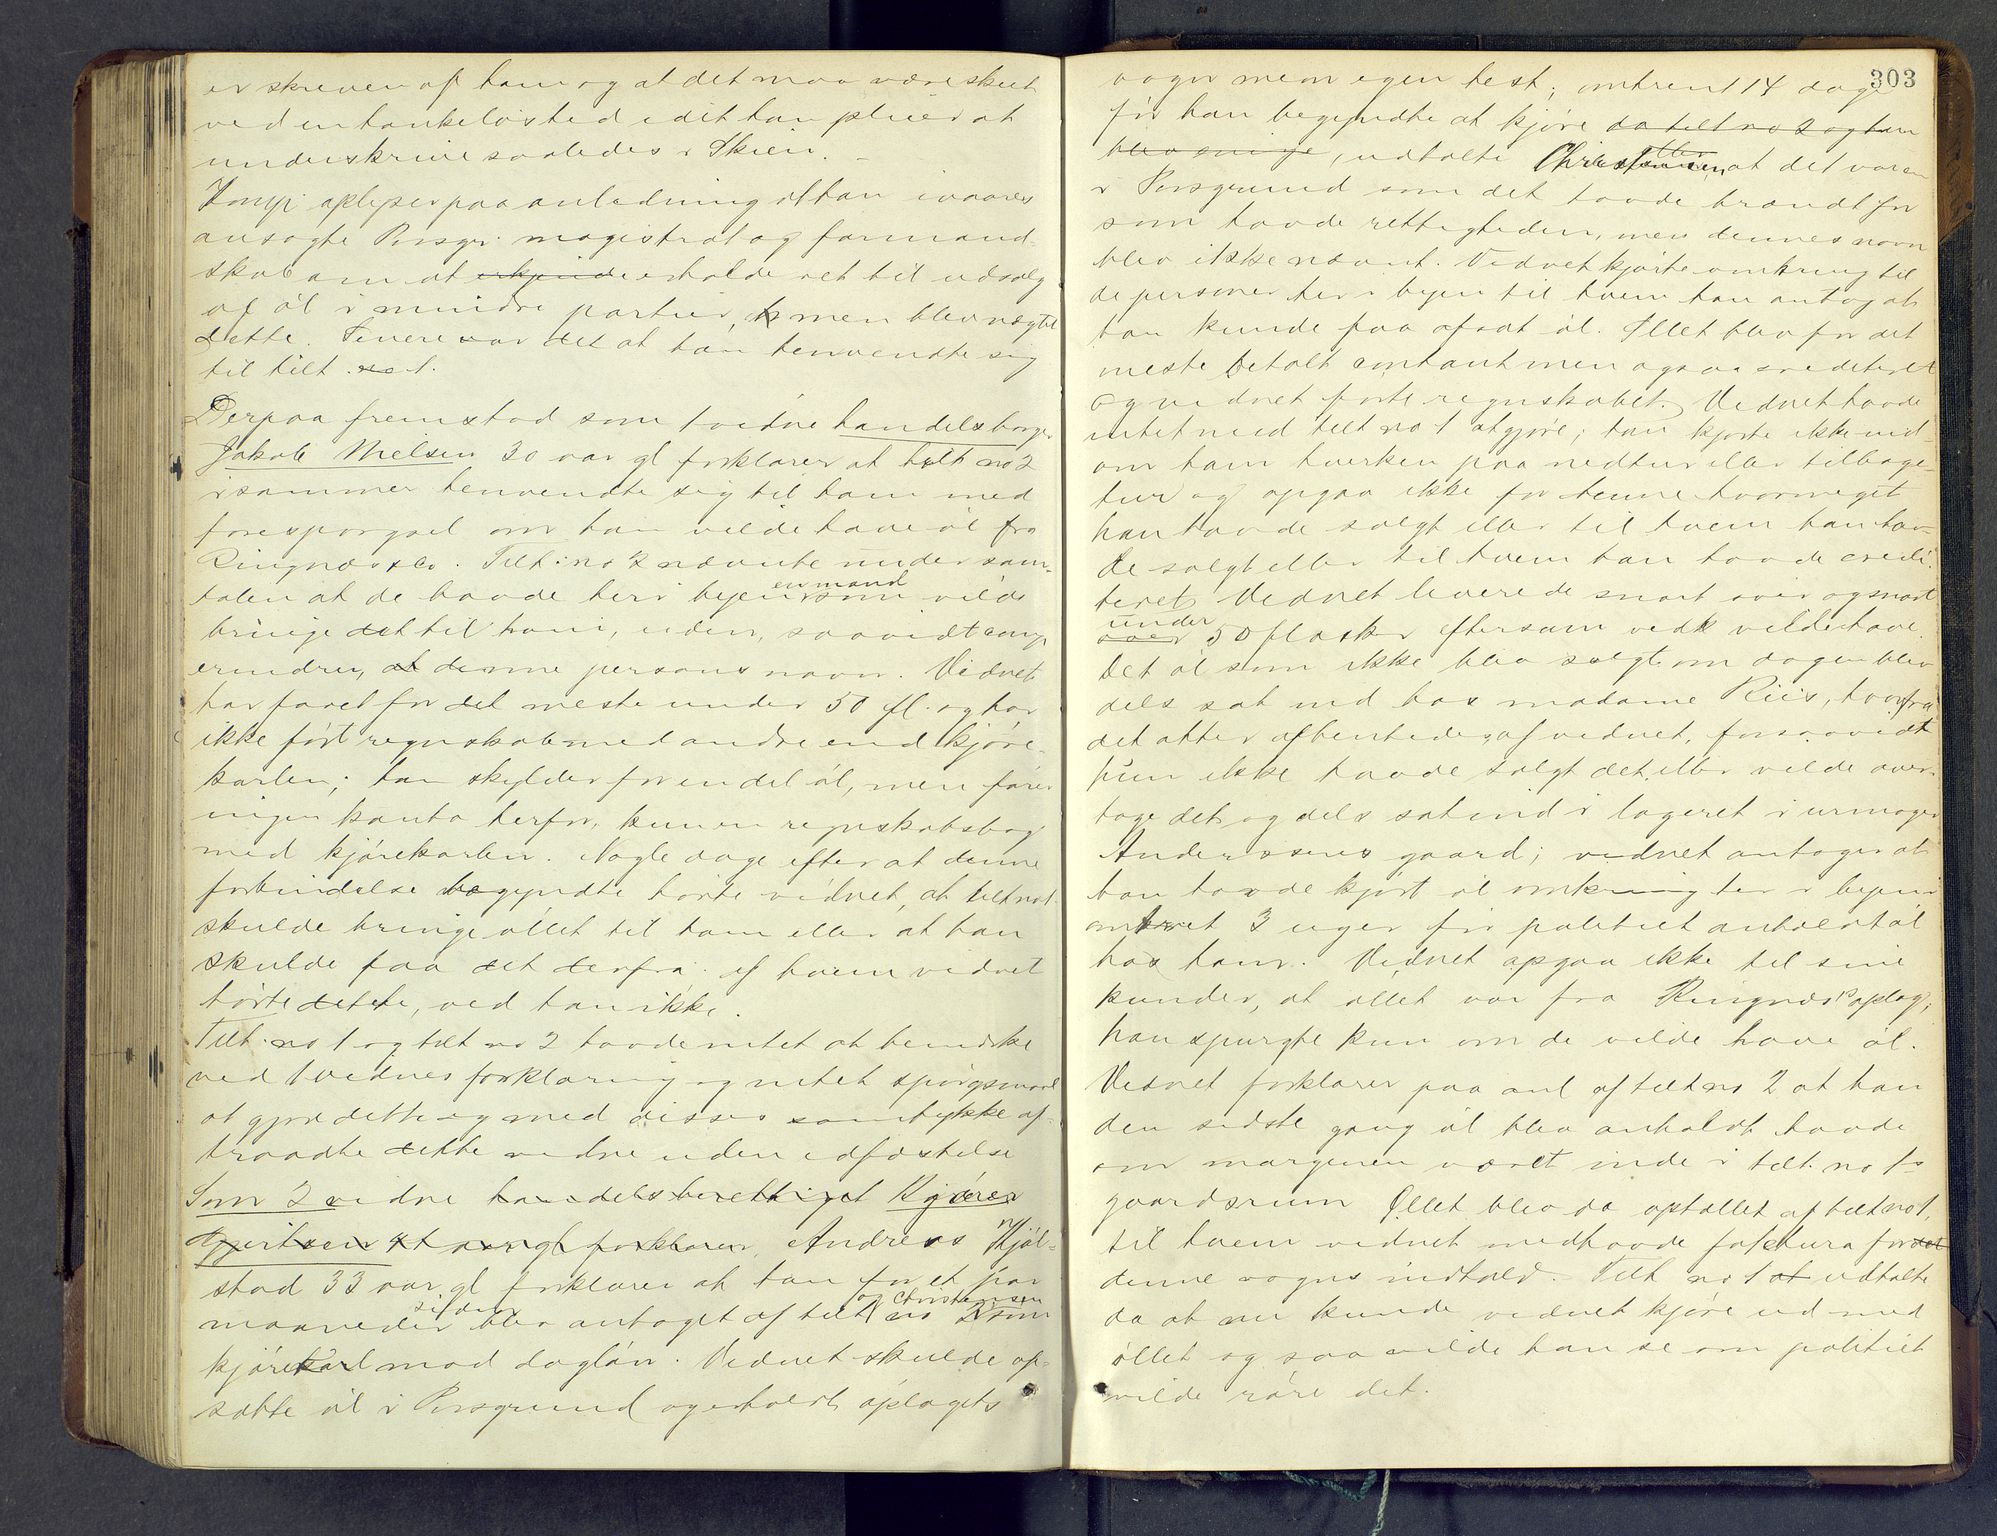 er skreven af ham og at det maa være skeet
ved en tankeløshed idet han pleier at
underskrive saaledes i Skien. –
Komp. oplyser paa anledning at han ivaares
ansøgte Porsgr. magistrat og formand-
skab om at erholde ret til udsalg
af øl i mindre partier, men blev nægtet
dette. Senere var det at han henvendte sig
til tilt. no 1.
Derpaa fremstod som 1 vidne handelsborger
Jakob Nielsen 30 aar gl forklarer at tilt no 2
i sommer henvendte sig til ham med
forespørgsel om han vilde have øl fra
Ringnæs &co. Tilt. no 2 nævnte under sam-
talen at de havde her i byen en mand som vilde
bringe det til ham, uden, saavidt comp
erindrer, at denne persons navn. Vidnet
har faaet for det meste under 50 fl. og har
ikke ført regnskab med andre end kjøre-
karlen; han skylder for en del øl, men fører
ingen konto herfor, kun en regnskabsbog
med kjørekarlen. Nogle dage efter at denne
forbindelse begyndte hørte vidnet, at tilt no 1
skulde bringe øllet til ham eller at han
skulde faa det derfra. af hvem vidnet
hørte dette, ved han ikke.
Tilt. no 1 og tilt no 2 havde intet at bemærke
ved 1 vidnes forklaring og intet spørgsmaal
at gjøre dette og med disses samtykke af-
traadte dette vidne uden edfæstelse
Som 2 vidne handelsberettiget Kjøres
Gjeritsen gl forklarer, Andreas Hjøl-
stad 33 aar gl forklarer at han for et par
maaneder siden blev antaget af tilt no 2 og Christensen som
kjørekarl mod dagløn. Vidnet skulde op-
sætte øl i Porsgrund og erholdt oplagets
303
vogn men egen hest; omtrent 14 dage
før han begyndte at kjøre da tilt no 2 og han
blev enige, udtalte Christensen at det var en
i Porsgrund som det havde brændt for
som havde rettigheden, men dennes navn
blev ikke nævnt. Vidnet kjørte omkring til
de personer her i byen til hvem han antog at
han kunde faa afsat øl. Øllet blev for det
meste betalt contant men ogsaa crediteret
og vidnet førte regnskabet. Vidnet havde
intet med tilt no 1 at gjøre; han kjørte ikke ind-
om ham hverken paa nedtur eller tilbage-
tur og opgav ikke for denne hvormeget
han havde solgt eller til hvem han hav-
de solgt eller til hvem han havde credi-
teret. Vidnet leverede snart over og snart
under 50 flasker eftersom vedk vilde have.
Det øl som ikke blev solgt om dagen blev
dels sat ind hos madame Riis, hvorfra
det atter afhentedes af vidnet, forsaavidt
hun ikke havde solgt det eller vilde over-
tage det og dels sat ind i lageret i urmager
Anderssens gaard; vidnet antager at
han havde kjørt øl omkring her i byen i
omtret 3 uger før politiet anholdt øl
hos ham. Vidnet opgav ikke til sine
kunder, at øllet var fra Ringnæs oplag;
han spurgte kun om de vilde have øl.
Vidnet forklarer paa anl af tilt no 2 at han
den sidste gang øl blev anholdt havde
om morgenen været inde i tilt. no 1s
gaardsrum Øllet blev da optallet af tilt no 1,
til hvem vidnet medhavde faktura for det
denne vogns indhold. Tilt no 1 udtalte
da at nu kunde vidnet kjøre ud med
øllet og saa vilde han se om politiet
vilde røre det.